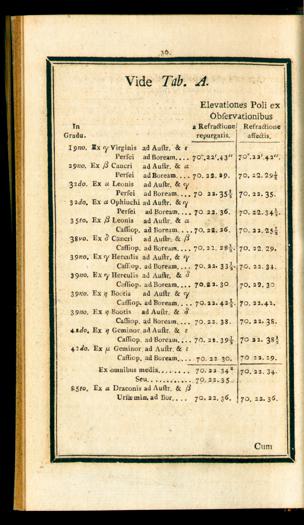 36.
Vide Tab. A.
Elevationes Poli ex
Observationibus
In a Refractione Refractione
Gradu. repurgatis. affectis.
19no. Ex γ Virginis ad Austr. & ε
Persei ad Boream.... 70°.22'.43" 70°.22'.42".
29no. Ex β Cancri ad Austr. & α
Persei ad Boream.... 70. 22. 29. 70. 22. 29½
32do. Ex α Leonis ad Austr. & γ
Persei ad Boream.... 70. 22. 35½ 70. 22. 35.
32do. Ex α Ophiuchi ad Austr. & γ
Persei ad Boream.... 70. 22. 36. 70. 22. 34½.
35to. Ex β Leonis ad Austr. & α
Cassiop. ad Boream.... 70. 22. 26. 70. 22. 25½
38vo. Ex δ Cancri ad Austr. & β
Cassiop. ad Boream.... 70. 22. 28½. 70. 22. 29.
39no. Ex γ Herculis ad Austr. & γ
Cassiop. ad Boream.... 70. 22. 33½. 70. 22. 34.
39no. Ex γ Herculis ad Austr. & δ
Cassiop. ad Boream.... 70. 22. 30 70. 22. 30
39no. Ex η Bootis ad Austr. & γ
Cassiop. ad Boream.... 70. 22. 42½. 70. 22. 42.
39no. Ex η Bootis ad Austr. & δ
Cassiop. ad Boream.... 70. 22. 38. 70. 22. 38.
42do. Ex η Geminor. ad Austr. & ε
Cassiop. ad Boream.... 70. 22. 39½ 70. 22. 38½
42do. Ex μ Geminor. ad Austr. & ε
Cassiop. ad Boream.... 70. 22. 30. 70. 22. 29.
Ex omnibus media........ 70. 22. 34 70. 22. 34.
Seu........... 70. 22. 35
85to. Ex α Draconis ad Austr. & β
Ursæ min. ad Bor.... 70. 22. 36. 70. 22. 36.
Cum